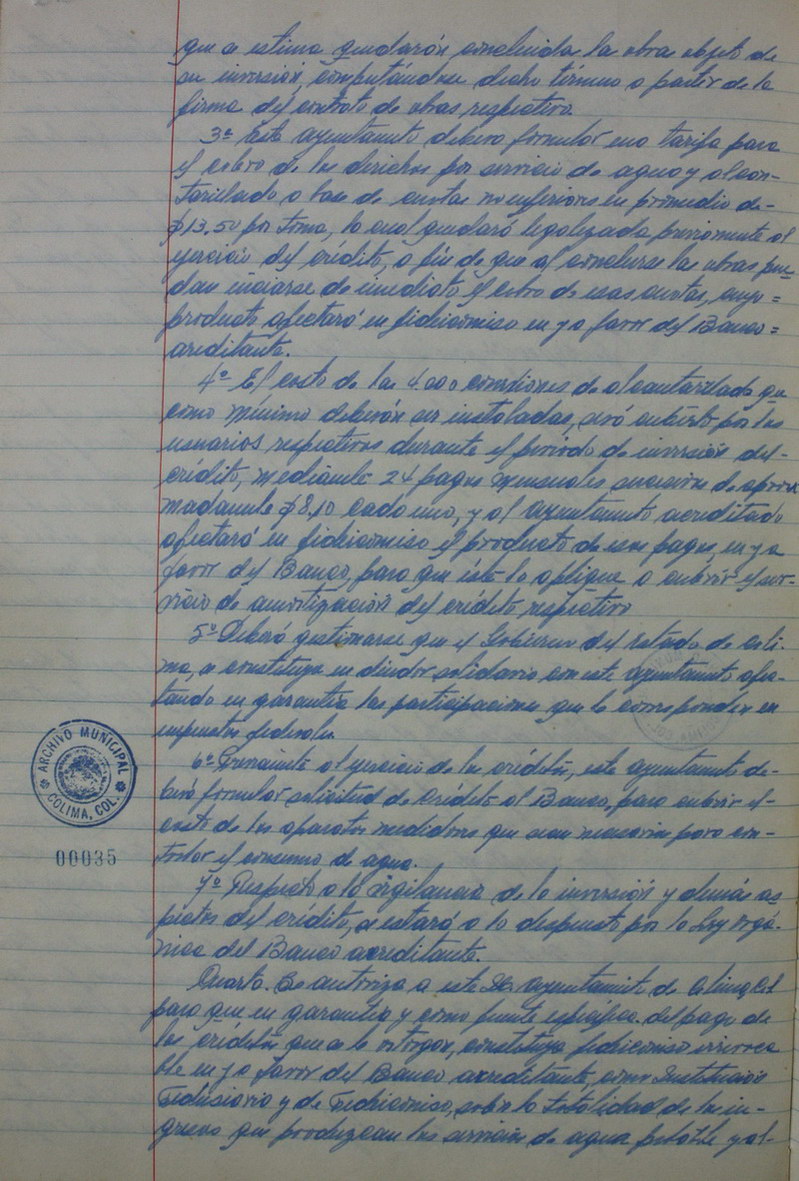 que se estima quedarán concluida la obra objeto de
su inversión, computándose dicho término a partir de la
firma del contrato de obras respectivo.
3ª Este ayuntamiento deberá formular una tarifa para
el cobro de los derechos por servicio de agua y alcan-
tarillado a base de cuotas no inferiores en promedio de-
$13.50 por toma, la cual quedará legalizada previamente al
ejercicio del crédito, a fin de que al concluirse las obras pue-
dan iniciarse de inmediato el cobro de esas cuotas, cuyo=
producto afectará en fideicomiso en y a favor del Banco=
acreditante.
4º El costo de las 4.000 conexiones de alcantarillado que
como mínimo deberán ser instaladas, será cubierto por los
usuarios respectivos durante el período de inversión del-
crédito, mediante 24 pagos mensuales sucesivos de aproxi
madamente $8.10 cada uno, y el ayuntamiento acreditado
afectará en fideicomiso el producto de esos pagos en y a
favor del Banco, para que éste lo aplique a cubrir el ser-
vicio de amortización del crédito respectivo
5º Deberá gestionarse que el Gobierno del Estado de Coli-
ma, se constituya en deudor solidario con este ayuntamiento afec-
tando en garantía las participaciones que le corresponden en
impuestos federales.
6º Previamente al ejercicio de los créditos, este ayuntamiento de-
berá formular solicitud de crédito al Banco, para cubrir el-
costo de los aparatos medidores que sean necesarios para con-
trolar el consumo de agua.
7º Respecto a la vigilancia de la inversión y demás as-
pectos del crédito, se estará a lo dispuesto por la Ley Orgá-
nica del Banco acreditante.
Cuarto. Se autoriza a este H. Ayuntamiento de Colima, Col
para que en garantía y como fuente específica del pago de
los créditos que se le otorgan, constituya fideicomiso irrevoca
ble en y a favor del Banco acreditante, como Institución
Fiduciaria y de Fideicomiso, sobre la totalidad de los in-
gresos que produzcan los servicios de agua potable y al-
ARCHIVO MUNICIPAL
COLIMA, COL.
00035